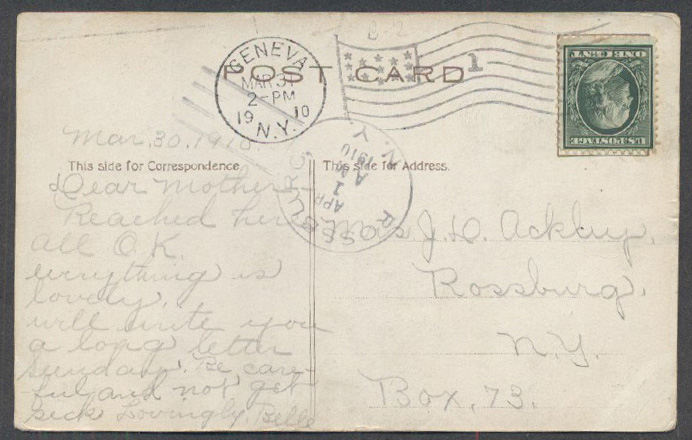 B-2
GENEVA
MAR 31
2-PM
1910
N.Y.
POST CARD
1
U.S. POSTAGE
ONE CENT
ROSSBURG
APR
1
A M
1910
N.Y.
Mar. 30, 1910.
This side for Correspondence.
This side for Address.
Dear Mother-
Reached here
all O.K.
everything is
lovely.
will write you
a long letter
Sunday. Be care-
ful and not get
sick Lovingly, Belle
Mrs J. D.
Rossburg,
N.Y.
Box, 73.